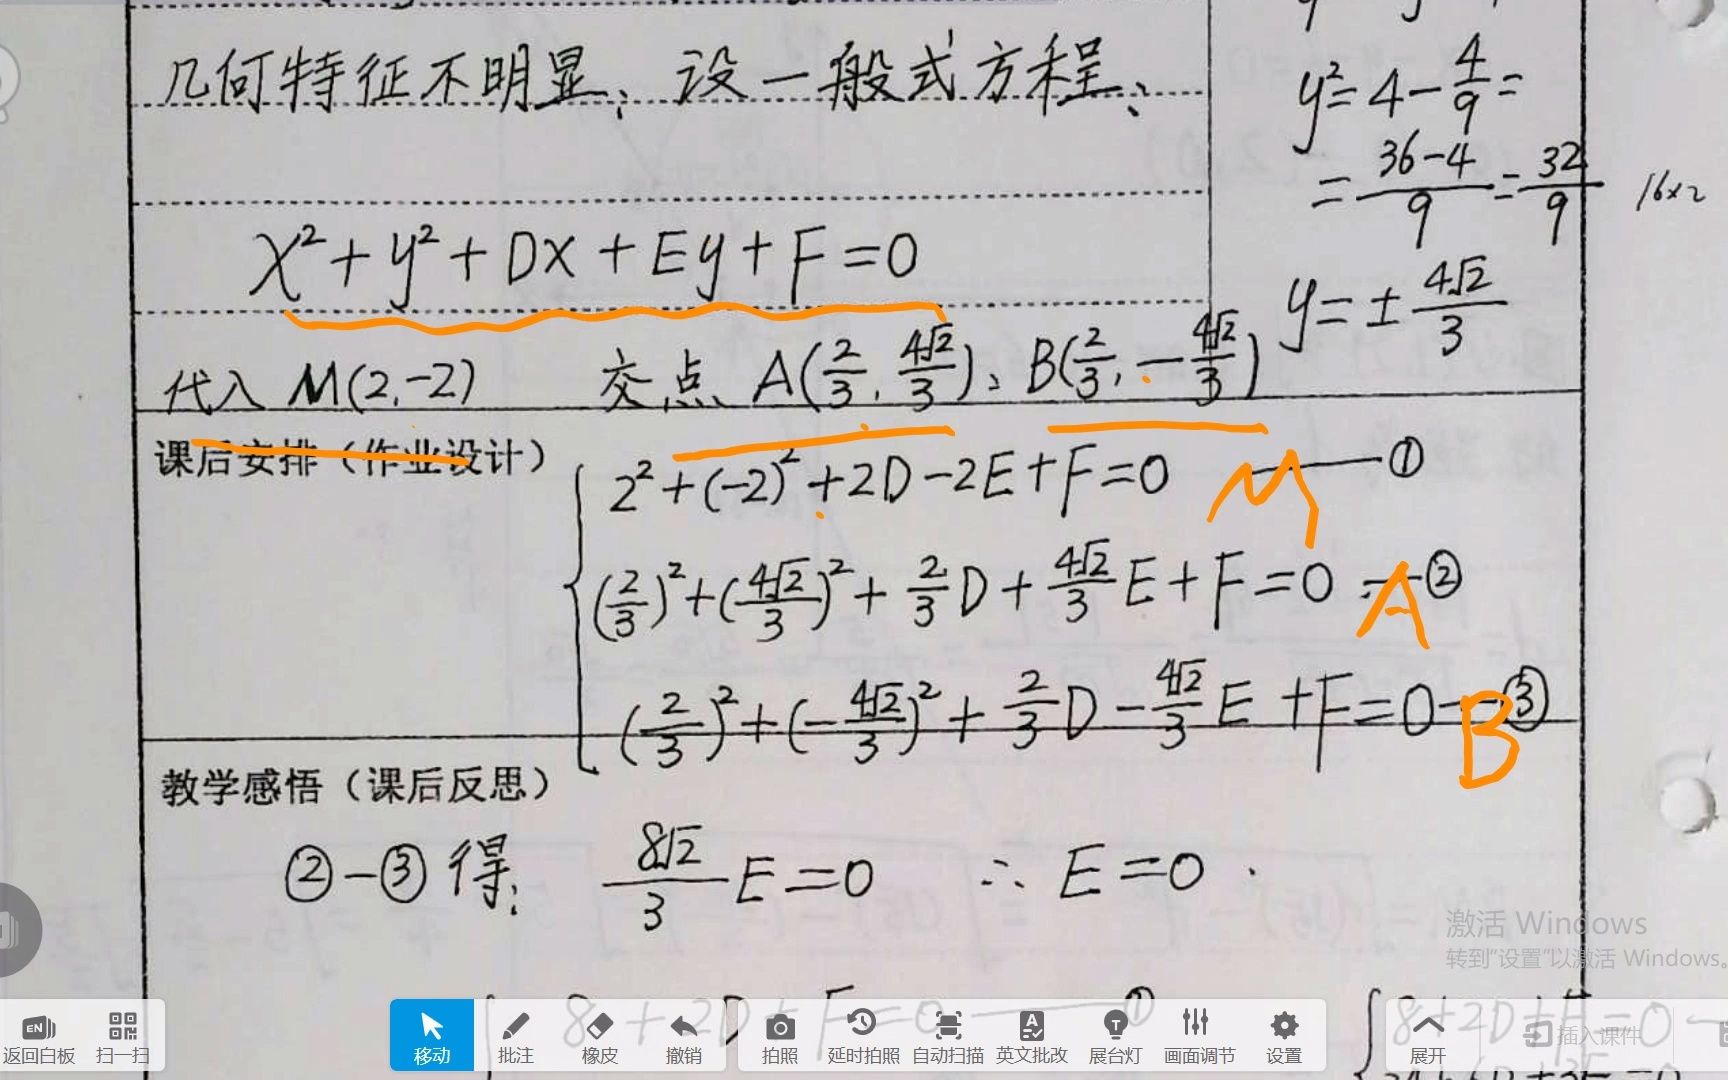 几何特征不明显、设一般式方程、
y²=4-4/9=
=(36-4)/9=32/9 16×2
x²+y²+Dx+Ey+F=0
y=±4√2/3
代入 M(2,-2) 交点 A(2/3, 4√2/3)、B(2/3, -4√2/3)
课后安排（作业设计）
2²+(-2)²+2D-2E+F=0 M ——①
(2/3)²+(4√2/3)²+2/3D+4√2/3E+F=0 A ②
(2/3)²+(-4√2/3)²+2/3D-4√2/3E+F=0 B ③
教学感悟（课后反思）
②-③得: 8√2/3 E=0 ∴E=0.
激活 Windows
转到"设置"以激活 Windows。
8+2D+F=0 ——①
8+2D+F=0
返回白板 扫一扫 移动 批注 橡皮 撤销 拍照 延时拍照 自动扫描 英文批改 展台灯 画面调节 设置 展开 插入课件